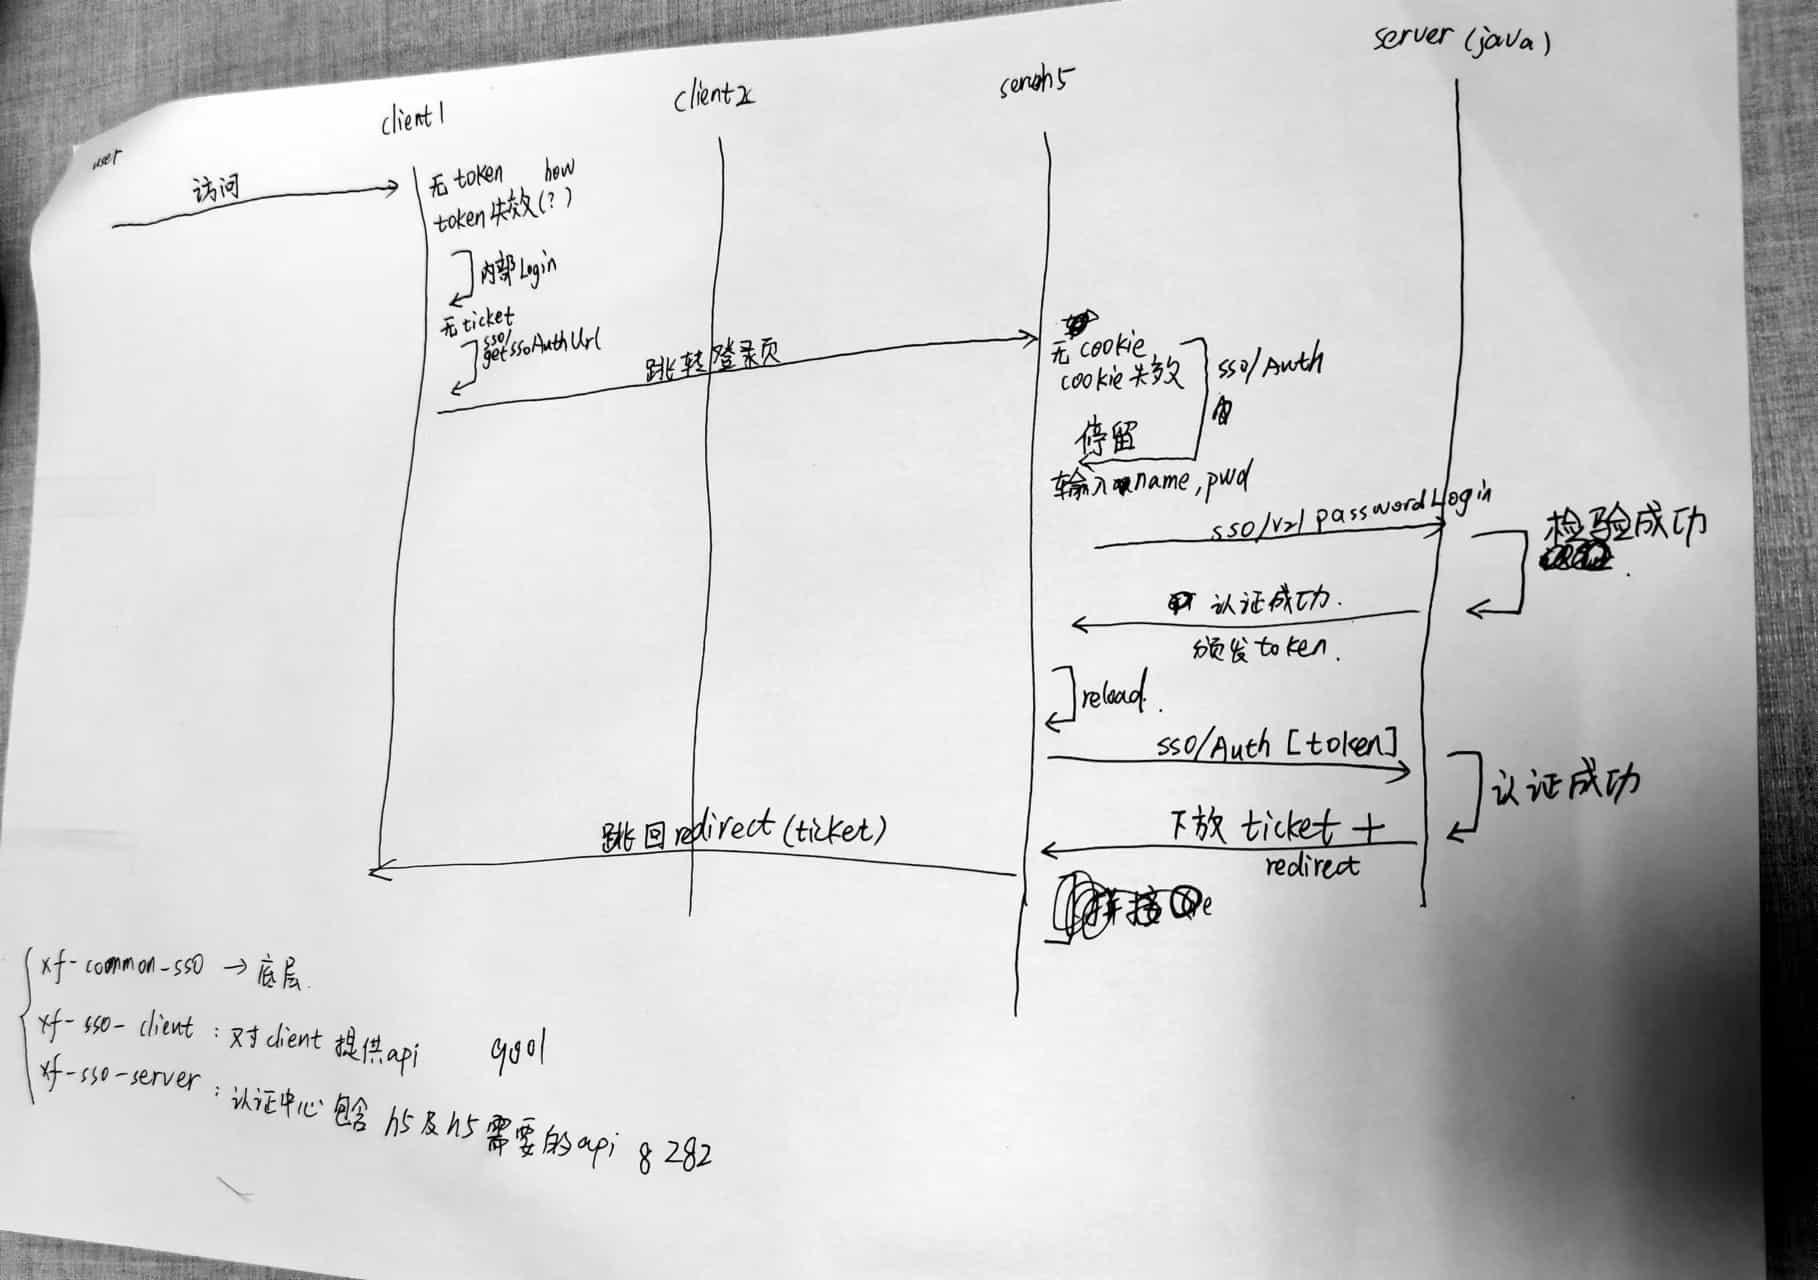 user
client1
client2
server(java)
访问
无token how
token失效(?)
内部Login
无ticket
sso/
getssoAuthUrl
跳转登录页
无cookie
cookie失效
sso/Auth
停留
输入name,pwd
sso/v2/passwordLogin
检验成功
认证成功.
颁发token.
reload.
sso/Auth [token]
认证成功
下放 ticket +
redirect
跳回redirect(ticket)
拼接
xf-common-sso → 底层.
xf-sso-client : 对client提供api
xf-sso-server : 认证中心 包含 h5及h5需要的api 8282